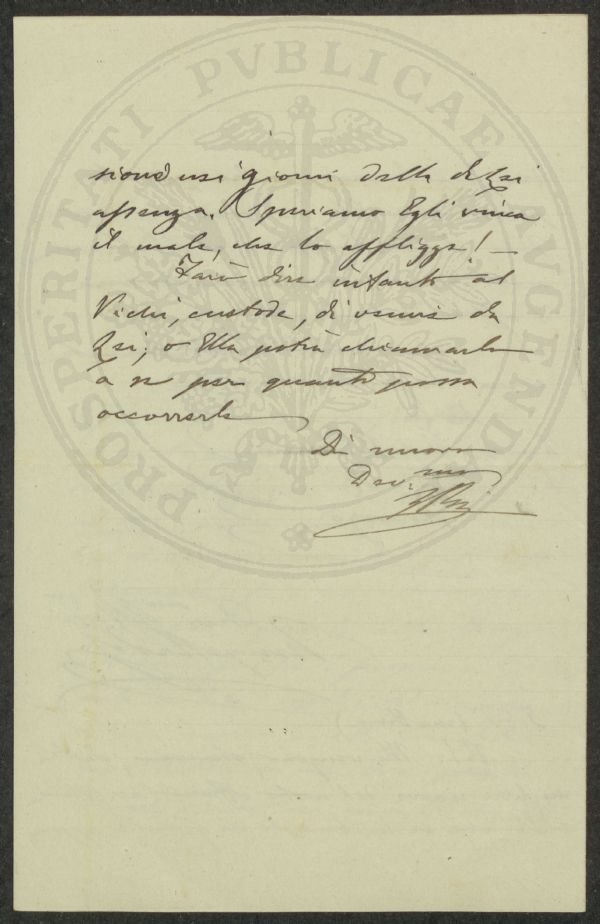 PROSPERITATI PVBLICAE AVGENDAE
giorni della di Lei
assenza. Speriamo Egli vinca
il male, che lo affligge! —
Farò dire intanto al
Vichi, custode, di venire da
Lei; o Ella potrà chiamarlo
a se per quanto possa
occorrerle
Di nuovo
Dev.mo